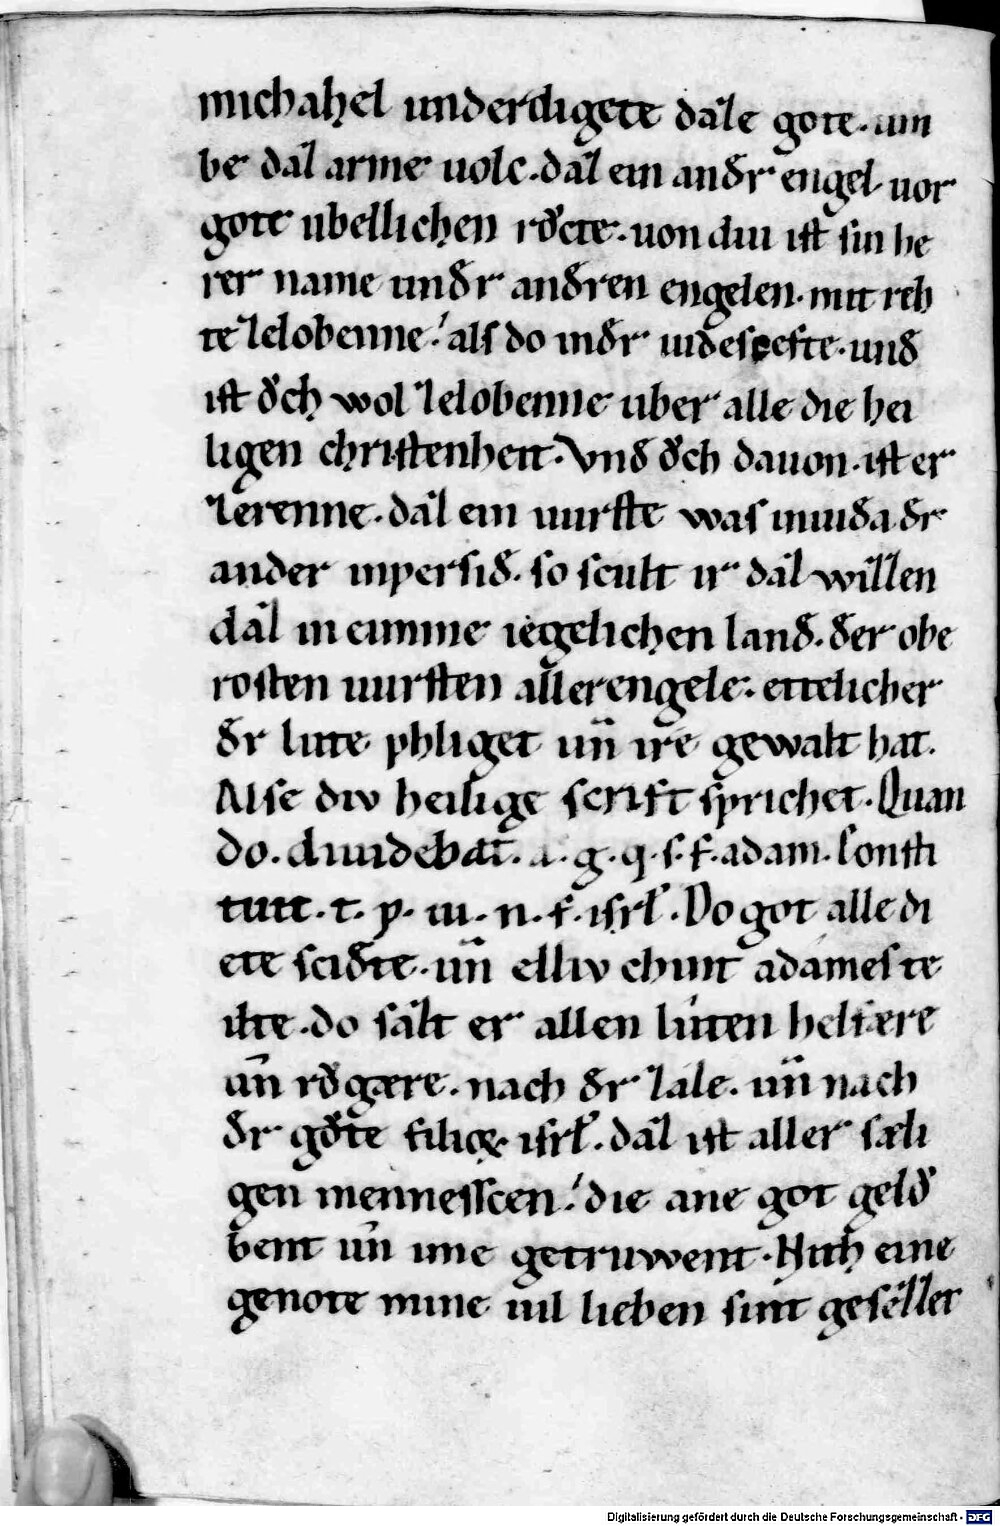 michahel underdigete daʒe gote. um
be daʒ arme uolc. daʒ ein andʳ engel uor
gote ubellichen rͦcte. uon diu ist sin he
rer name undʳ andren engelen. mit reh
te ʒelobenne. als do indʳ iudescefte. und
ist ͦch wol ʒelobenne uber alle die hei
ligen christenheit. Vnd ͦch dauon. ist er
ʒerenne. daʒ ein uurste was
ander inpersid. so scult ir daʒ wiʒʒen
daʒ in eimme iegelichen land. der obe
rosten uursten aller engele. ettelicher
dʳ lute phliget un̄ ire gewalt hat.
Alse div heilige scrift sprichet. Quan
do. diuidebat. a. g. q. s. f. adam. Consti
tuit. t. p. iu. n. f. isrl̄. Do got alle di
ete scidte. un̄ elliv chunt adames te
ilte. do saʒt er allen luten helfære
un̄ rͦgære. nach dʳ ʒale. un̄ nach
dʳ gͦte filioꝝ isrl̄. daʒ ist aller sæli
gen mennesscen. die ane got gelͦ
bent un̄ ime getruwent. Nith eine
genote mine uil lieben sint geseʒʒet